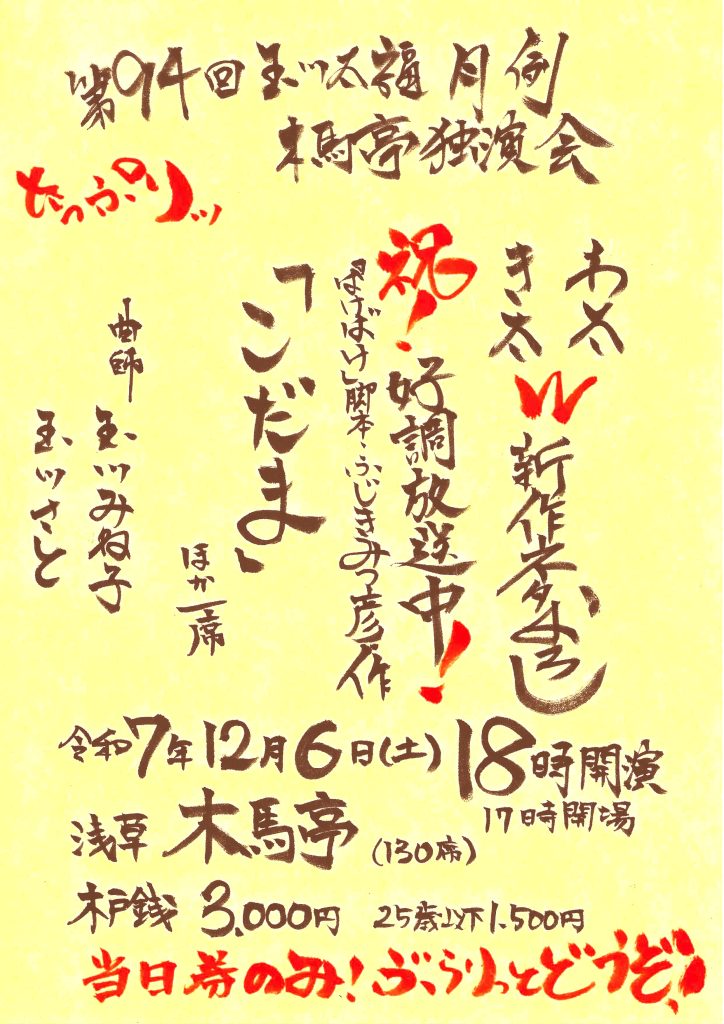 第94回 玉川太福 月例
木馬亭独演会
たっぷりッ
わ太
き太
W
新作ネタおろし
祝!
好調放送中!
『ばけばけ』脚本・ふじきみつ彦作
「こだま」
ほか一席
曲師
玉川みね子
玉川さと
令和7年12月6日(土) 18時開演
17時開場
浅草 木馬亭 (130席)
木戸銭 3,000円 25歳以下1,500円
当日券のみ!ぶらりっとどうぞ!